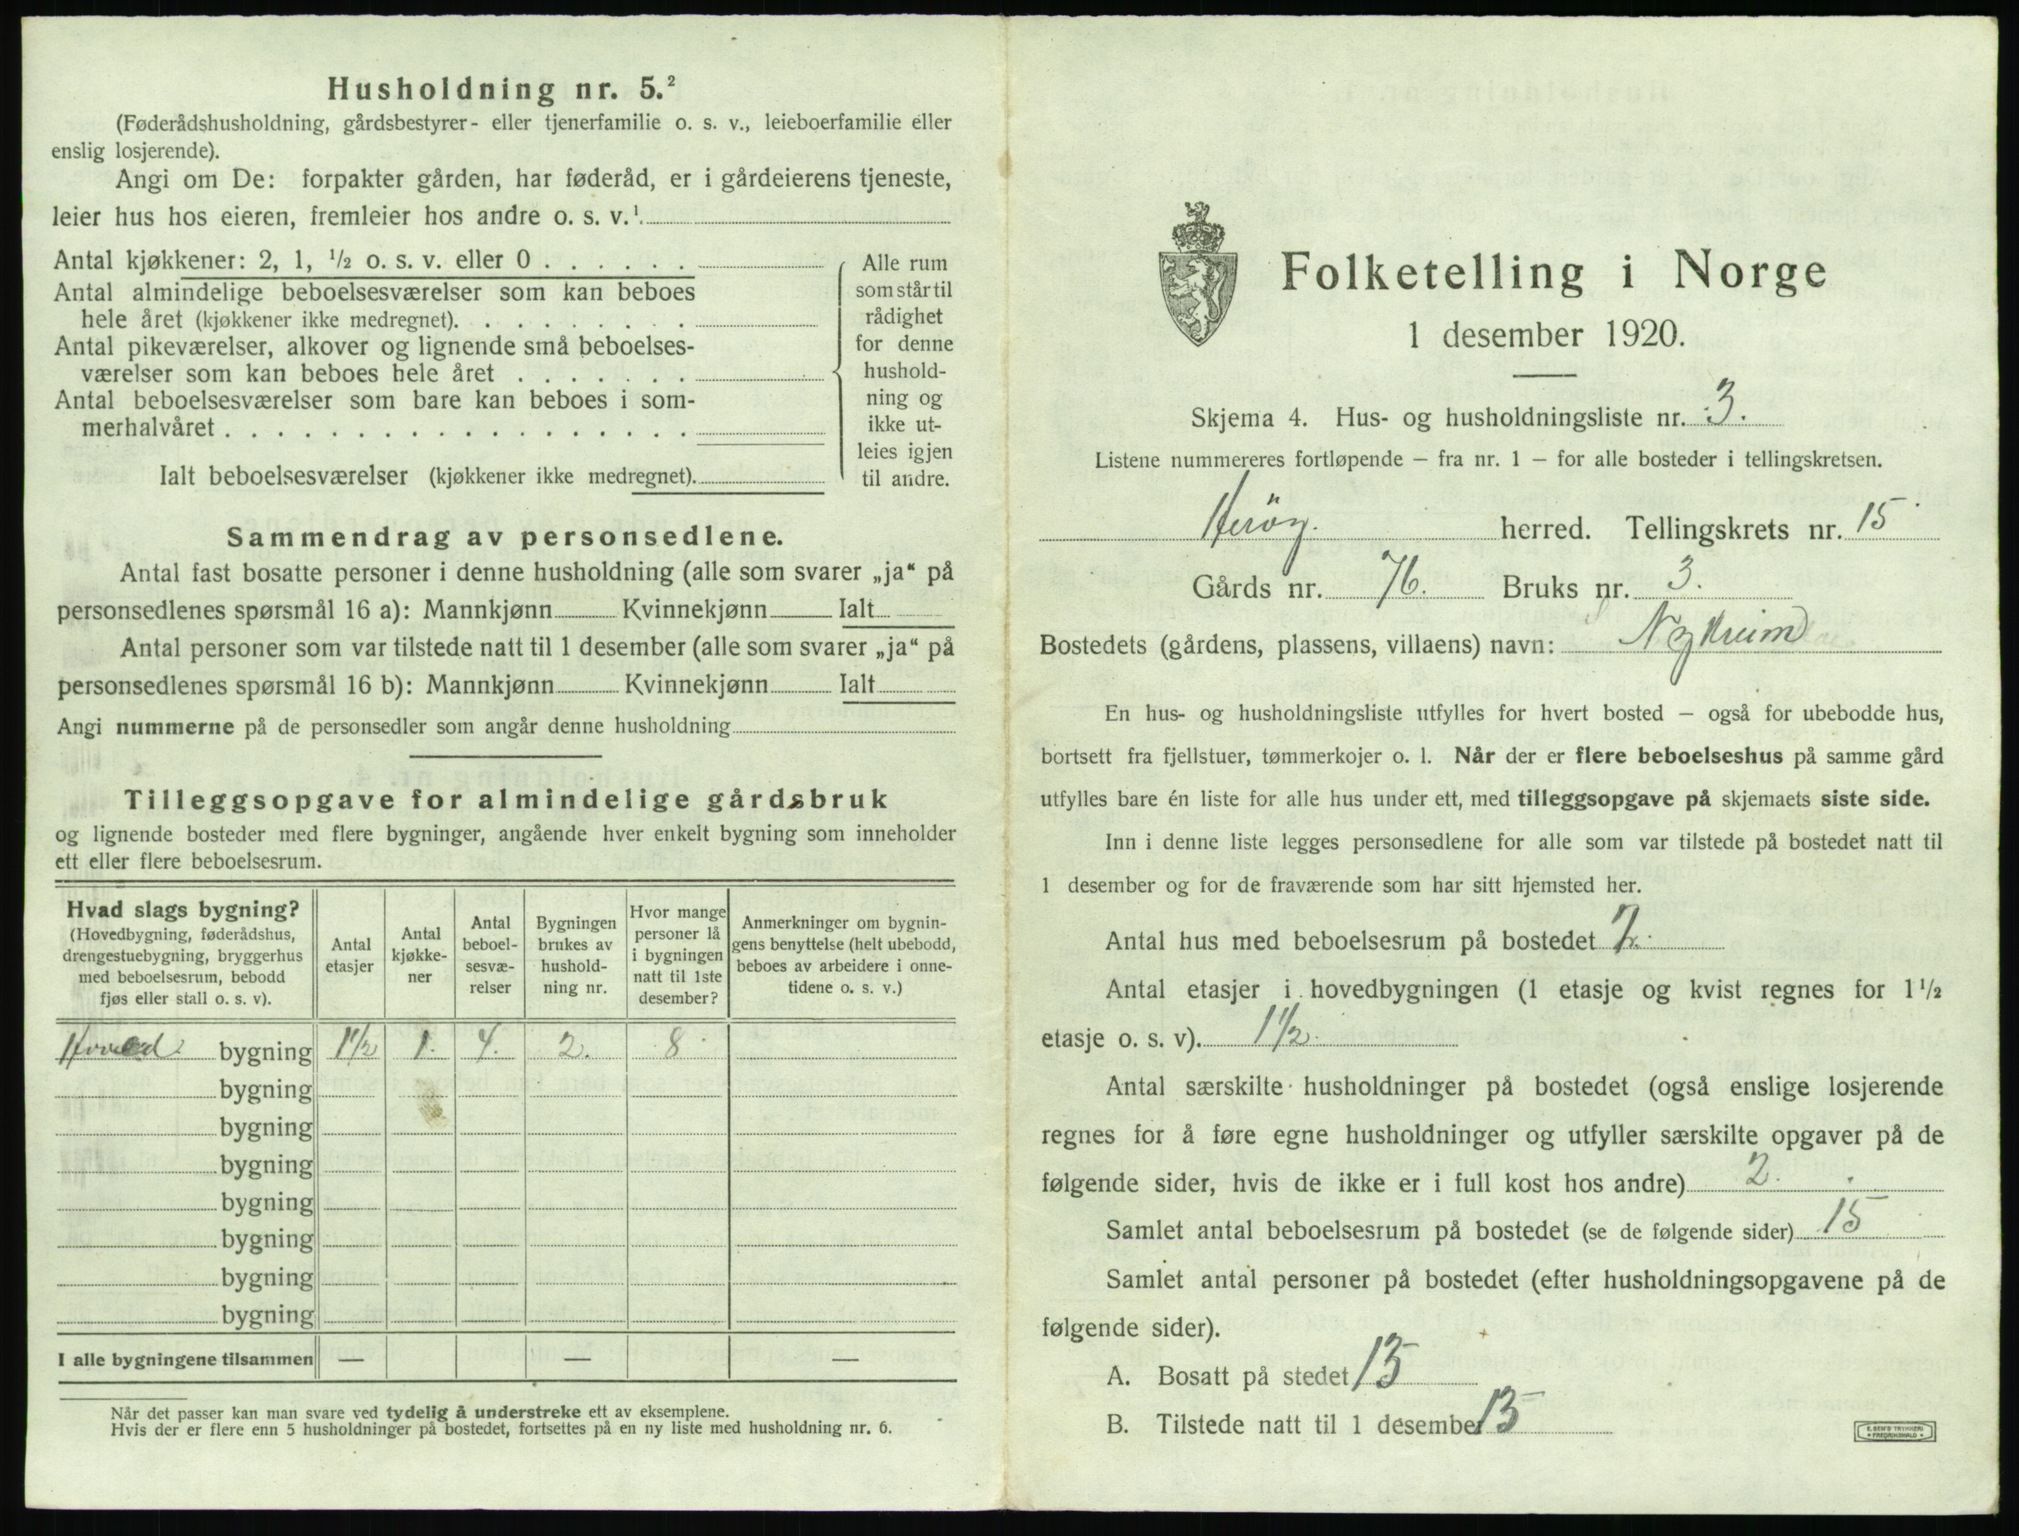 Husholdning nr. 5.²
(Føderådshusholdning, gårdsbestyrer- eller tjenerfamilie o. s. v., leieboerfamilie eller
enslig losjerende).
Angi om De: forpakter gården, har føderåd, er i gårdeierens tjeneste,
leier hus hos eieren, fremleier hos andre o. s. v.¹
Antal kjøkkener: 2, 1, ½ o. s. v. eller 0 . . . . . .
Antal almindelige beboelsesværelser som kan beboes
hele året (kjøkkener ikke medregnet). . . . . . . . .
Antal pikeværelser, alkover og lignende små beboelses-
værelser som kan beboes hele året . . . . . . .
Antal beboelsesværelser som bare kan beboes i som-
merhalvåret . . . . . . . . . . . . . . . . . .
Ialt beboelsesværelser (kjøkkener ikke medregnet).
Alle rum
som står til
rådighet
for denne
hushold-
ning og
ikke ut-
leies igjen
til andre.
Sammendrag av personsedlene.
Antal fast bosatte personer i denne husholdning (alle som svarer „ja“ på
personsedlenes spørsmål 16 a): Mannkjønn Kvinnekjønn Ialt
Antal personer som var tilstede natt til 1 desember (alle som svarer „ja“ på
personsedlenes spørsmål 16 b): Mannkjønn Kvinnekjønn Ialt
Angi nummerne på de personsedler som angår denne husholdning
Tilleggsopgave for almindelige gårdsbruk
og lignende bosteder med flere bygninger, angående hver enkelt bygning som inneholder
ett eller flere beboelsesrum.
Hvad slags bygning?
(Hovedbygning, føderådshus,
drengestuebygning, bryggerhus
med beboelsesrum, bebodd
fjøs eller stall o. s. v).
Antal
etasjer
Antal
kjøkke-
ner
Antal
beboel-
sesvæ-
relser
Bygningen
brukes av
hushold-
ning nr.
Hvor mange
personer lå
i bygningen
natt til 1ste
desember?
Anmerkninger om bygnin-
gens benyttelse (helt ubebodd,
beboes av arbeidere i onne-
tidene o. s. v.)
Hoved bygning 1½ 1. 4. 2. 8
bygning
bygning
bygning
bygning
bygning
bygning
bygning
I alle bygningene tilsammen — — —
Når det passer kan man svare ved tydelig å understreke ett av eksemplene.
Hvis der er flere enn 5 husholdninger på bostedet, fortsettes på en ny liste med husholdning nr. 6.
Folketelling i Norge
1 desember 1920.
Skjema 4. Hus- og husholdningsliste nr. 3.
Listene nummereres fortløpende — fra nr. 1 — for alle bosteder i tellingskretsen.
Heröy. herred. Tellingskrets nr. 15
Gårds nr. 76. Bruks nr. 3.
Bostedets (gårdens, plassens, villaens) navn:
En hus- og husholdningsliste utfylles for hvert bosted — også for ubebodde hus,
bortsett fra fjellstuer, tømmerkojer o. l. Når der er flere beboelseshus på samme gård
utfylles bare én liste for alle hus under ett, med tilleggsopgave på skjemaets siste side.
Inn i denne liste legges personsedlene for alle som var tilstede på bostedet natt til
1 desember og for de fraværende som har sitt hjemsted her.
Antal hus med beboelsesrum på bostedet 2.
Antal etasjer i hovedbygningen (1 etasje og kvist regnes for 1½
etasje o. s. v). 1½.
Antal særskilte husholdninger på bostedet (også enslige losjerende
regnes for å føre egne husholdninger og utfyller særskilte opgaver på de
følgende sider, hvis de ikke er i full kost hos andre) 2.
Samlet antal beboelsesrum på bostedet (se de følgende sider) 15
Samlet antal personer på bostedet (efter husholdningsopgavene på de
følgende sider).
A. Bosatt på stedet 13
B. Tilstede natt til 1 desember 13